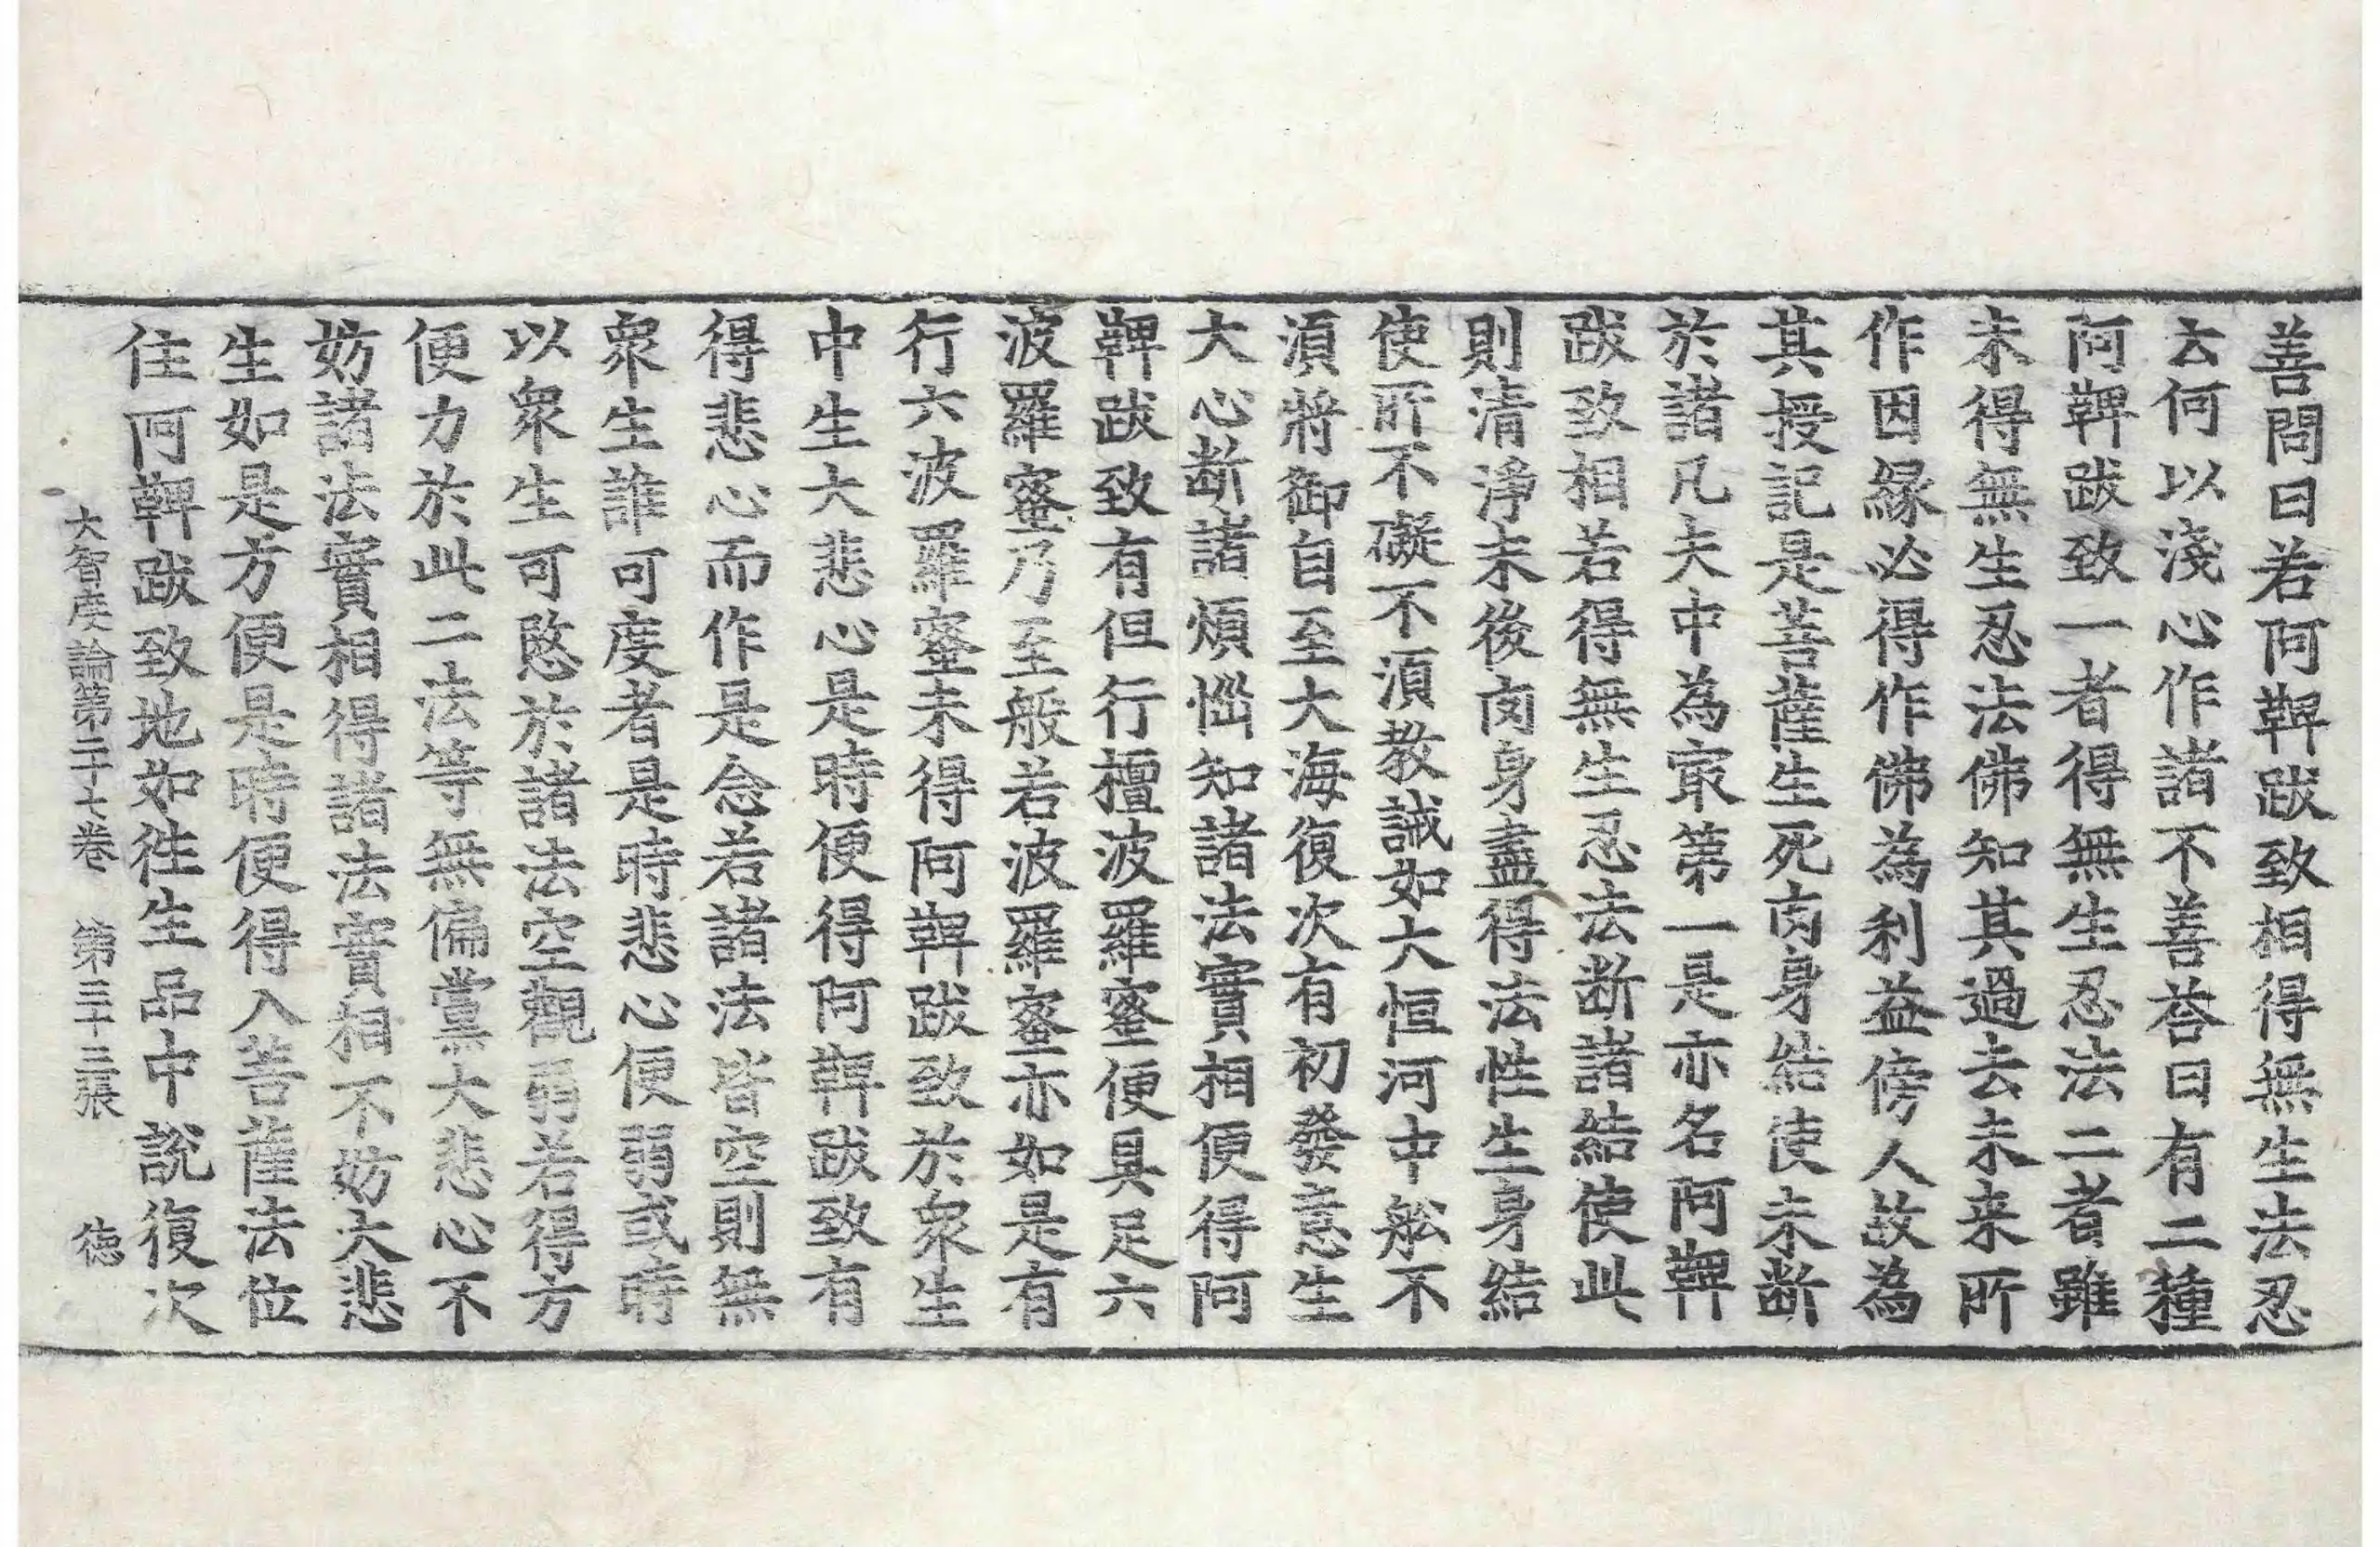 善問曰若阿鞞跋致相得無生法忍
云何以淺心作諸不善荅曰有二種
阿鞞跋致一者得無生忍法二者雖
未得無生忍法佛知其過去未来所
作因緣必得作佛為利益傍人故為
其授記是菩薩生死肉身結使未断
於諸凡夫中為㝡第一是亦名阿鞞
跋致相若得無生忍法断諸結使此
則清淨末後肉身盡得法性生身結
使所不礙不湏教誡如大恒河中舩不
湏將御自至大海復次有初發意生
大心断諸煩惱知諸法實相便得阿
鞞跋致有但行檀波羅蜜便具足六
波羅蜜乃至般若波羅蜜亦如是有
行六波羅蜜未得阿鞞跋致於衆生
中生大悲心是時便得阿鞞跋致有
得悲心而作是念若諸法皆空則無
衆生誰可度者是時悲心便弱或時
以衆生可愍於諸法空觀弱若得方
便力於此二法等無偏黨大悲心不
妨諸法實相得諸法實相不妨大悲
生如是方便是時便得入菩薩法位
住阿鞞跋致地如徃生品中說復次
大智度論第二十七卷　第三十三張　德